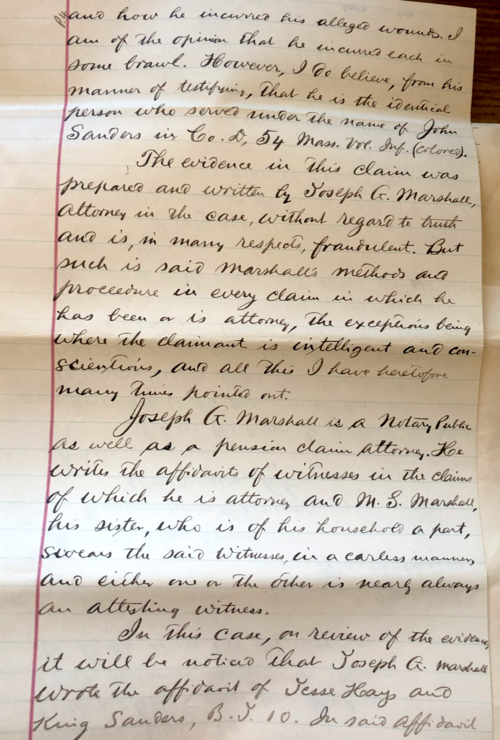 and how he incurred his alleged wounds. I
am of the opinion that he incured each in
some brawl. However, I do believe, from his
manner of testifying, that he is the identical
person who served under the name of John
Sanders in Co. D, 54 Mass. Vol. Inf. (Colored).
The evidence in this claim was
prepared and written by Joseph A. Marshall,
attorney in the case, without regard to truth
and is, in many respects, fraudulent. But
such is said Marshall's methods and
proceedure in every claim in which he
has been or is attorney, the exceptions being
where the claimant is intelligent and con-
scientious, and all this I have heretofore
many times pointed out.
Joseph A. Marshall is a Notary Public
as well as a pension claim attorney. He
writes the affidavits of witnesses in the claims
of which he is attorney and M. S. Marshall,
his sister, who is of his household a part,
swears the said witnesses, in a carless manner,
and either one or the other is nearly always
an attesting witness.
In this case, on review of the evidence,
it will be noticed that Joseph A. Marshall
wrote the affidavit of Jesse Hays and
King Sanders, B. J. 10. In said affidavit